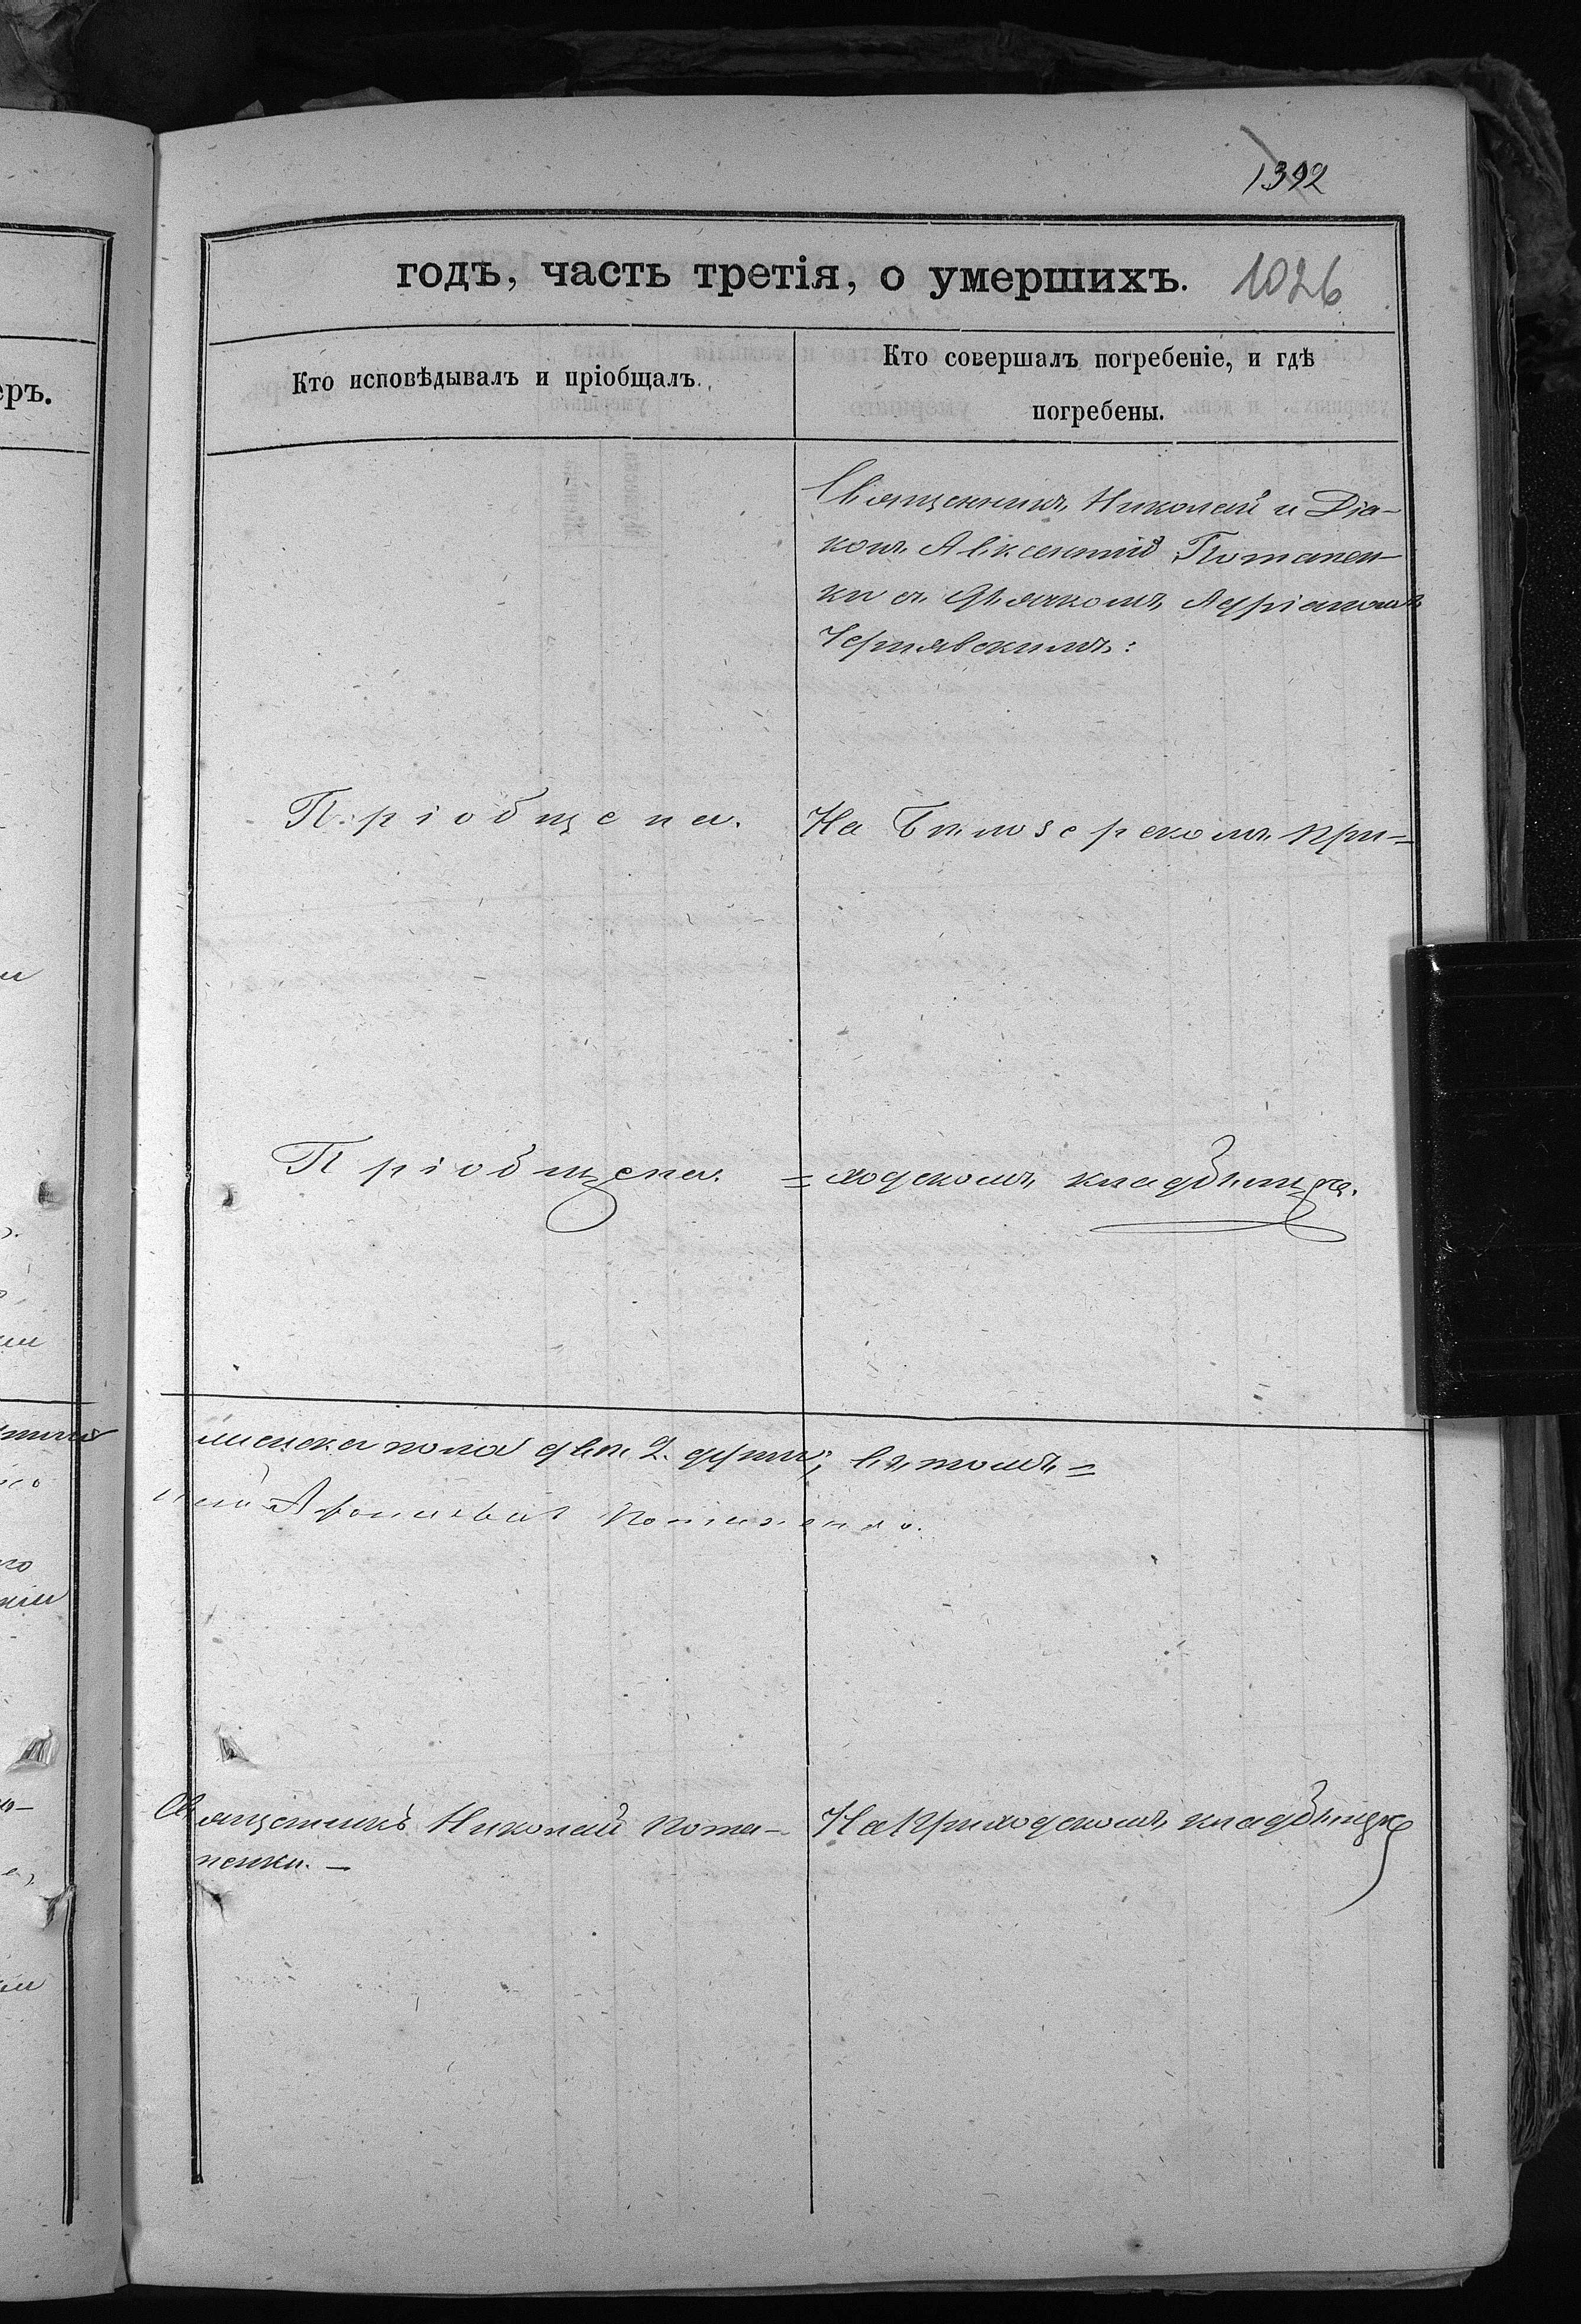 1392
годъ, часть третія, о умершихъ. 1026
Кто исповѣдывалъ и пріобщалъ.
Кто совершалъ погребеніе, и гдѣ
погребены.
еръ.
Священникъ Николай и Діа-
конъ Авксентій Потапен-
ки съ Дьячкомъ Адріаномъ
Чернявскимъ:
Пріобщена.
На Бѣлозерскомъ при=
Пріобщена.
=ходскомъ кладбищѣ.
женска пола двѣ 2. души, въ томъ=
Потапенко.
Священникъ Николай Пота-
пенки. —
На Приходскомъ кладбищѣ